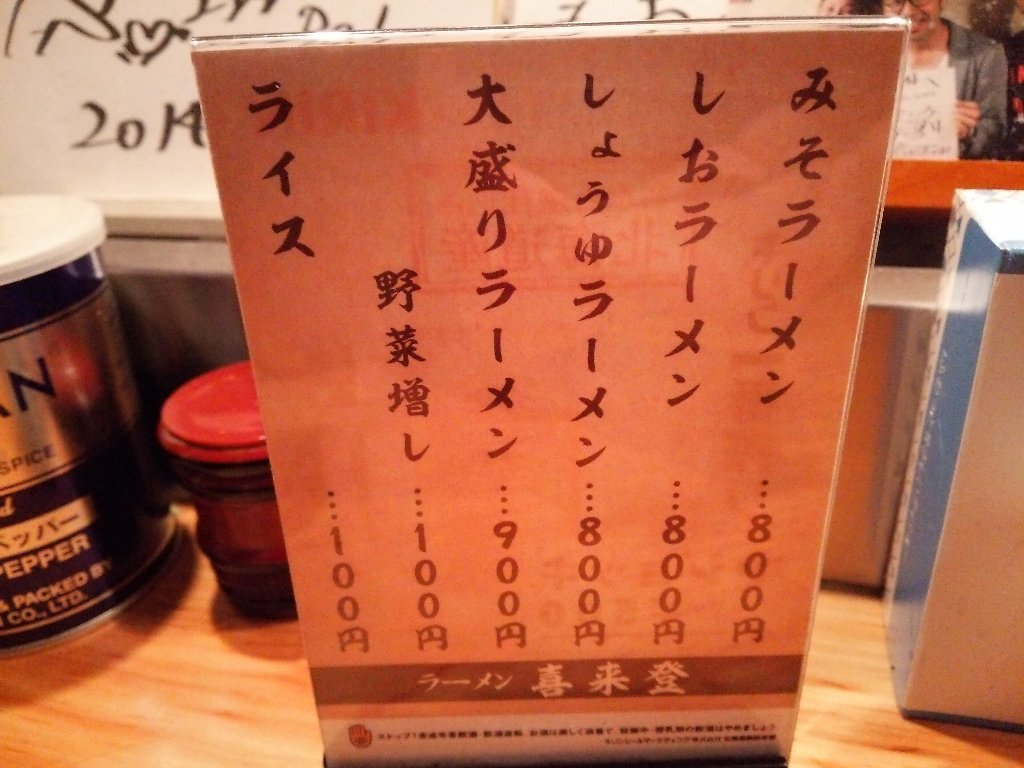 みそラーメン…800円
しおラーメン…800円
しょうゆラーメン…800円
大盛りラーメン…900円
野菜増し…100円
ライス…100円
ラーメン 喜来登
2014
AN
SPICE
ペッパー
PEPPER
& PACKED BY
CO., LTD.